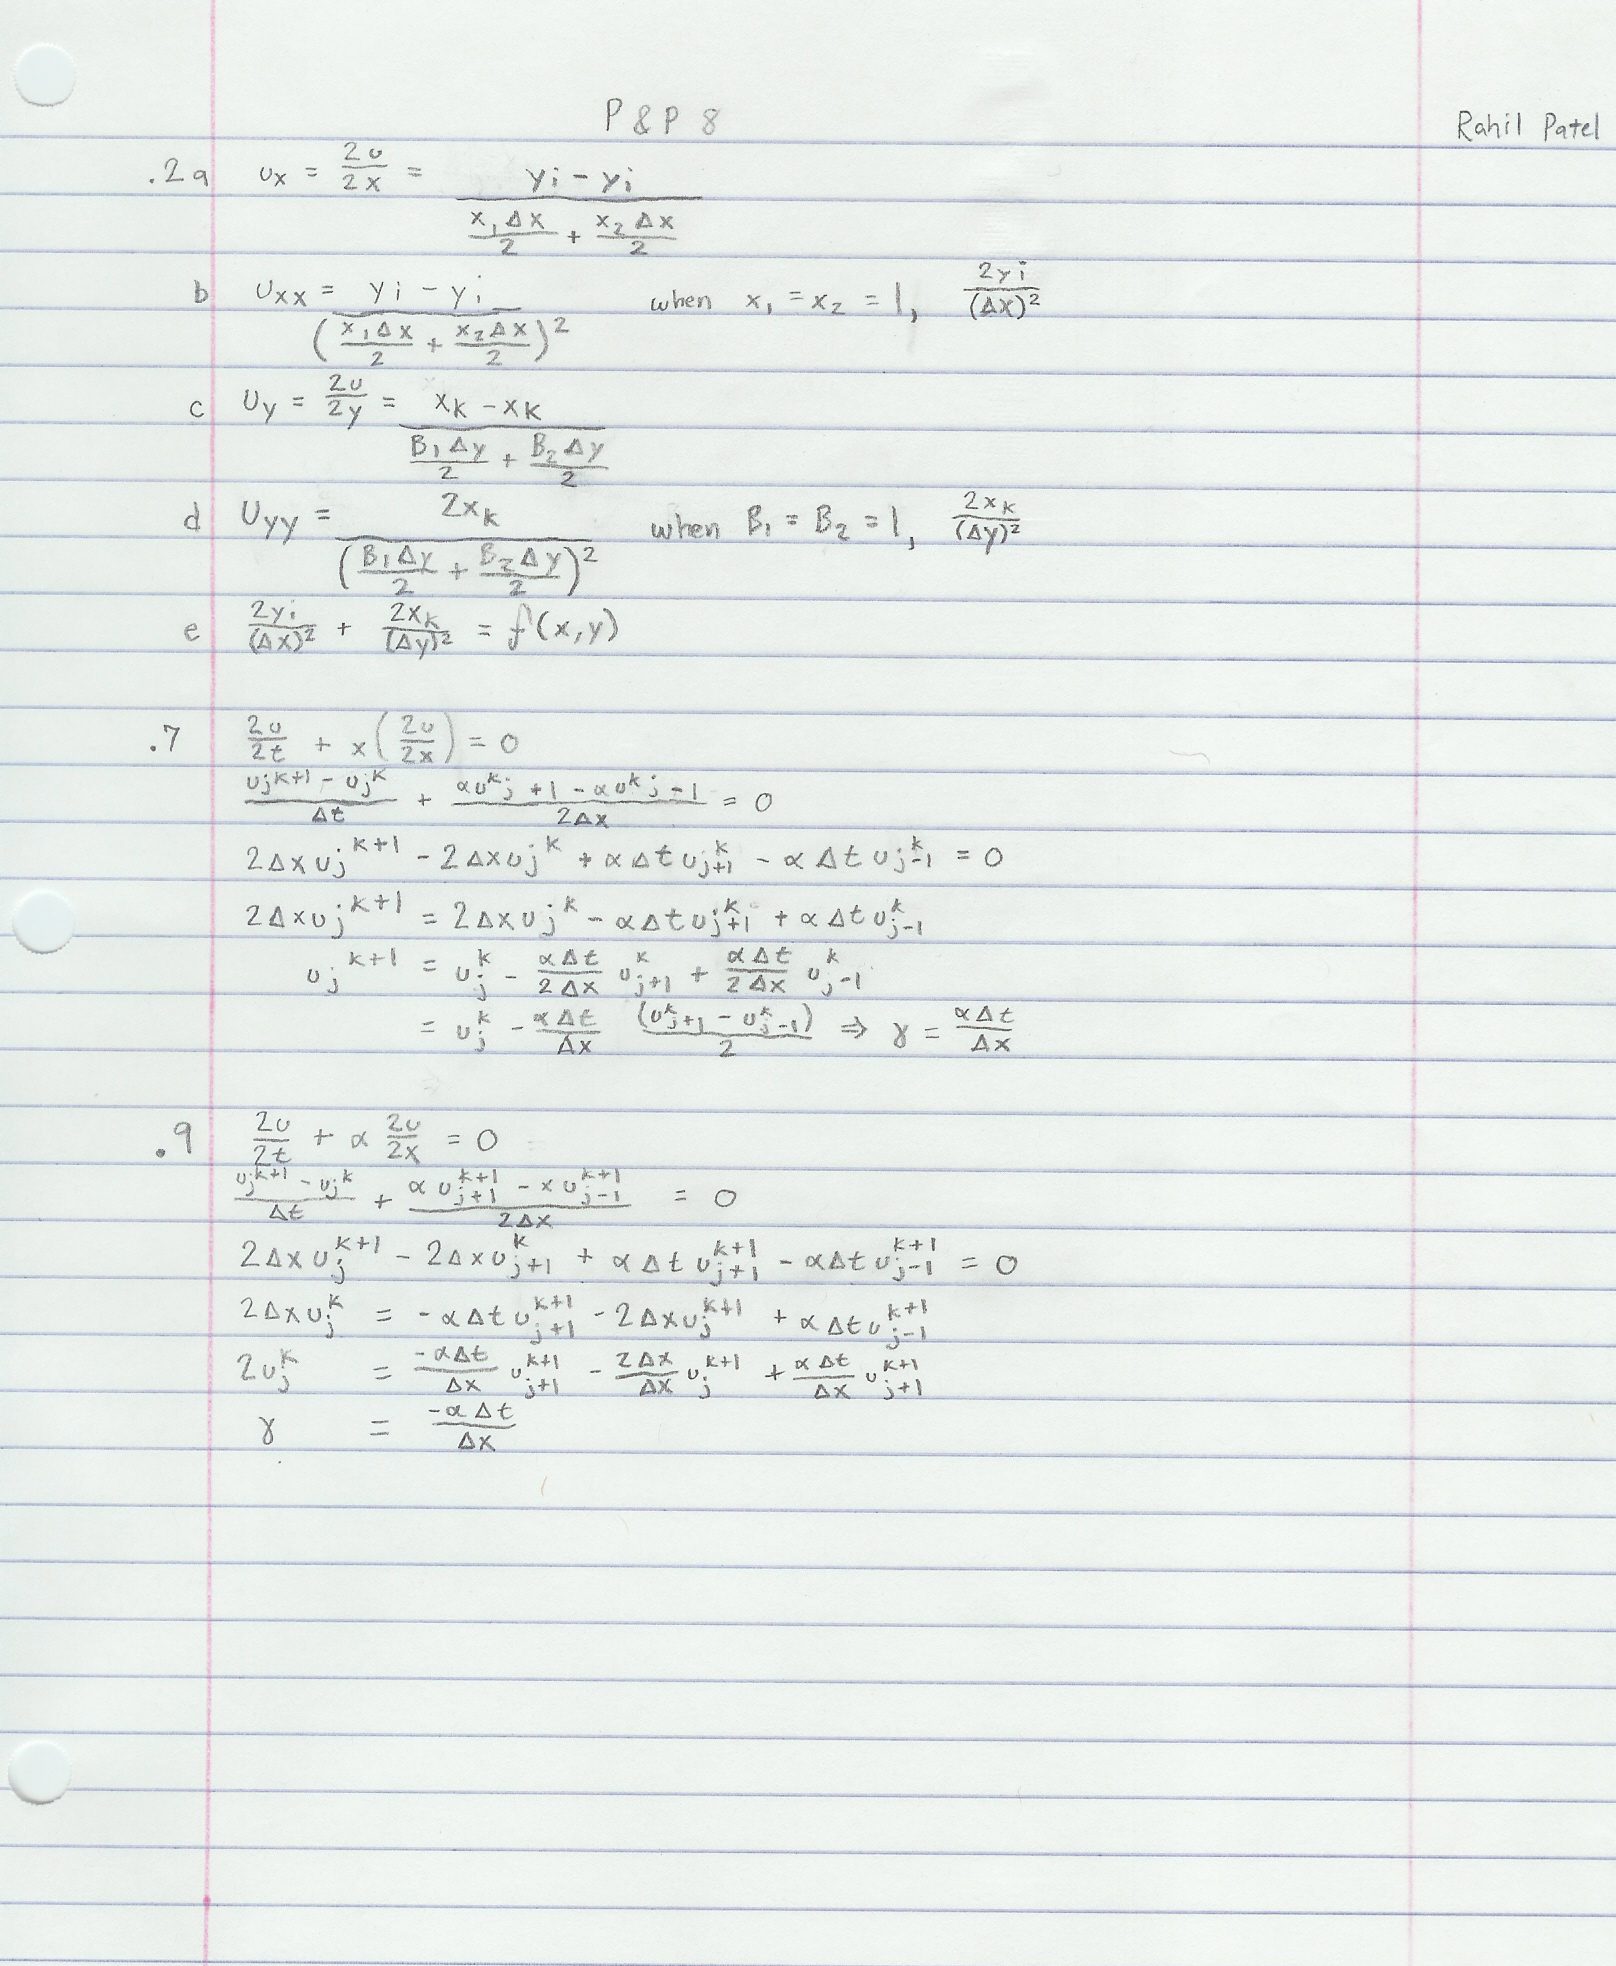 P & P 8
Rahil Patel
.2a ux = 2u/2x = (yi - yi) / (x₁Δx/2 + x₂Δx/2)
b Uxx = (yi - yi) / (x₁Δx/2 + x₂Δx/2)² when x₁ = x₂ = 1, 2yi/(Δx)²
c Uy = 2u/2y = (xk - xk) / (B₁Δy/2 + B₂Δy/2)
d Uyy = 2xk / (B₁Δy/2 + B₂Δy/2)² when B₁ = B₂ = 1, 2xk/(Δy)²
e 2yi/(Δx)² + 2xk/(Δy)² = f(x,y)
.7 2u/2t + x(2u/2x) = 0
(uj^k+1 - uj^k)/Δt + (αu^k j+1 - αu^k j-1)/2Δx = 0
2Δx uj^k+1 - 2Δx uj^k + αΔt u^k j+1 - αΔt u^k j-1 = 0
2Δx uj^k+1 = 2Δx uj^k - αΔt u^k j+1 + αΔt u^k j-1
uj^k+1 = u^k j - αΔt/2Δx u^k j+1 + αΔt/2Δx u^k j-1
= u^k j - αΔt/Δx (u^k j+1 - u^k j-1)/2 ⇒ γ = αΔt/Δx
.9 2u/2t + α 2u/2x = 0
(uj^k+1 - uj^k)/Δt + (αu^k+1 j+1 - xu^k+1 j-1)/2Δx = 0
2Δx u^k+1 j - 2Δx u^k j+1 + αΔt u^k+1 j+1 - αΔt u^k+1 j-1 = 0
2Δx u^k j = -αΔt u^k+1 j+1 - 2Δx u^k+1 j + αΔt u^k+1 j-1
2u^k j = -αΔt/Δx u^k+1 j+1 - 2Δx/Δx u^k+1 j + αΔt/Δx u^k+1 j+1
γ = -αΔt/Δx